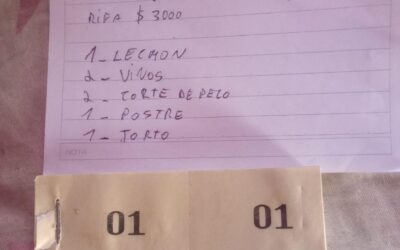 RIFA $ 3000
1 - LECHON
2 - VINOS
2 - CORTE DE PELO
1 - POSTRE
1 - TORTO
NOTA
01
01